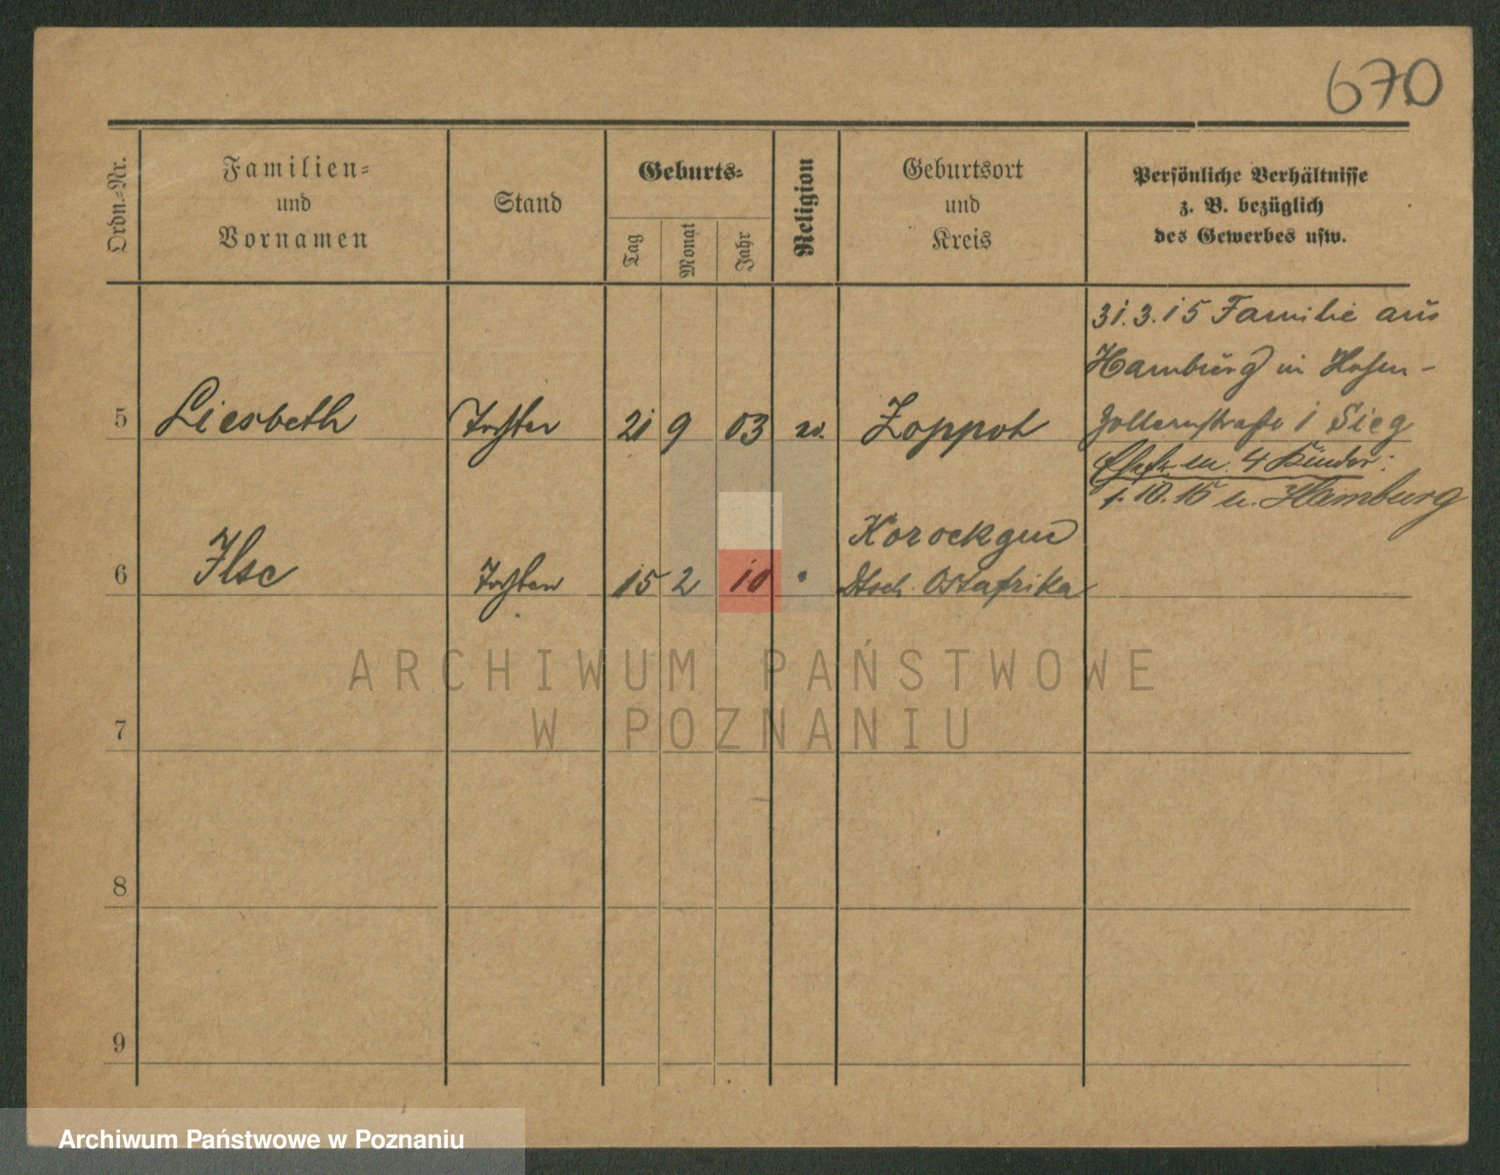 670
Ordn.-Nr.
Familien-
und
Vornamen
Stand
Geburts-
Tag
Monat
Jahr
Religion
Geburtsort
und
Kreis
Persönliche Verhältnisse
z. B. bezüglich
des Gewerbes usw.
31.3.15 Familie aus
Hamburg in Hohen-
zollernstraße 1 Sieg
5 Liesbeth Tochter 21 9 03 Zoppot
Ehefr. u. 4 Kinder:
1.10.15 n. Hamburg
Korockgue
6 Ilse Tochter 15 2 10 Dtsch. Ostafrika
7
8
9
ARCHIWUM PAŃSTWOWE
W POZNANIU
Archiwum Państwowe w Poznaniu